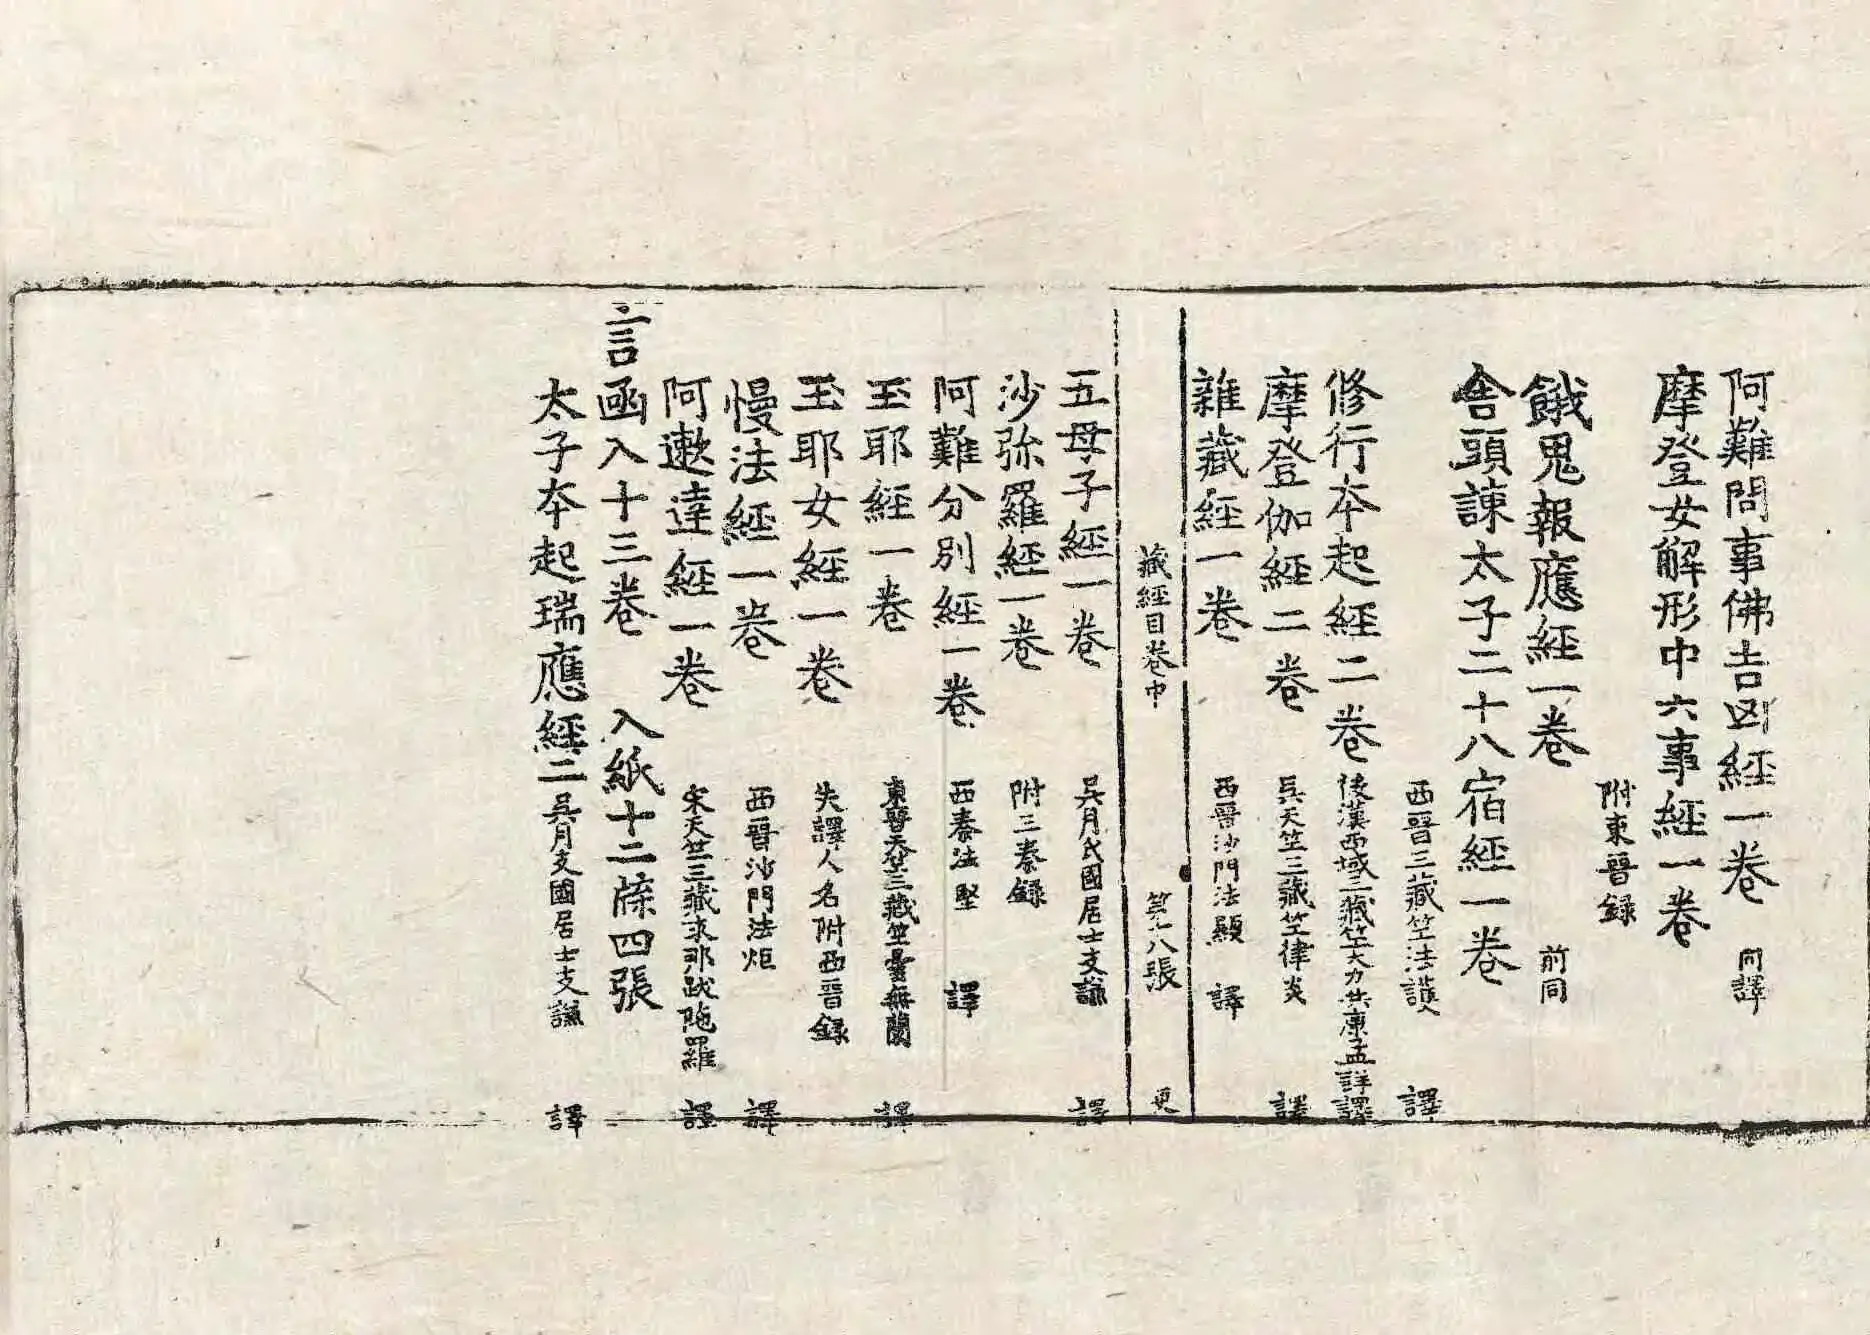 阿難問事佛吉凶經一卷 同譯
摩登女解形中六事經一卷
附東晉録
餓鬼報應經一卷 前同
舍頭諫太子二十八宿經一卷
西晉三藏竺法護 譯
修行本起經二卷 後漢西域三藏竺大力共康孟詳譯
摩登伽經二卷 吳天竺三藏竺律炎 譯
雜藏經一卷 西晉沙門法顯 譯
藏經目卷中 第十八張 更
五母子經一卷 吳月氏國居士支謙 譯
沙弥羅經一卷 附三秦録
阿難分別經一卷 西秦法堅 譯
玉耶經一卷 東晉天竺三藏竺曇無蘭 譯
玉耶女經一卷 失譯人名附西晉録
慢法經一卷 西晉沙門法炬 譯
阿遬達經一卷 宋天竺三藏求那跋陁羅 譯
言函入十三卷 入紙十二牒四張
太子本起瑞應經二 吳月支國居士支謙 譯